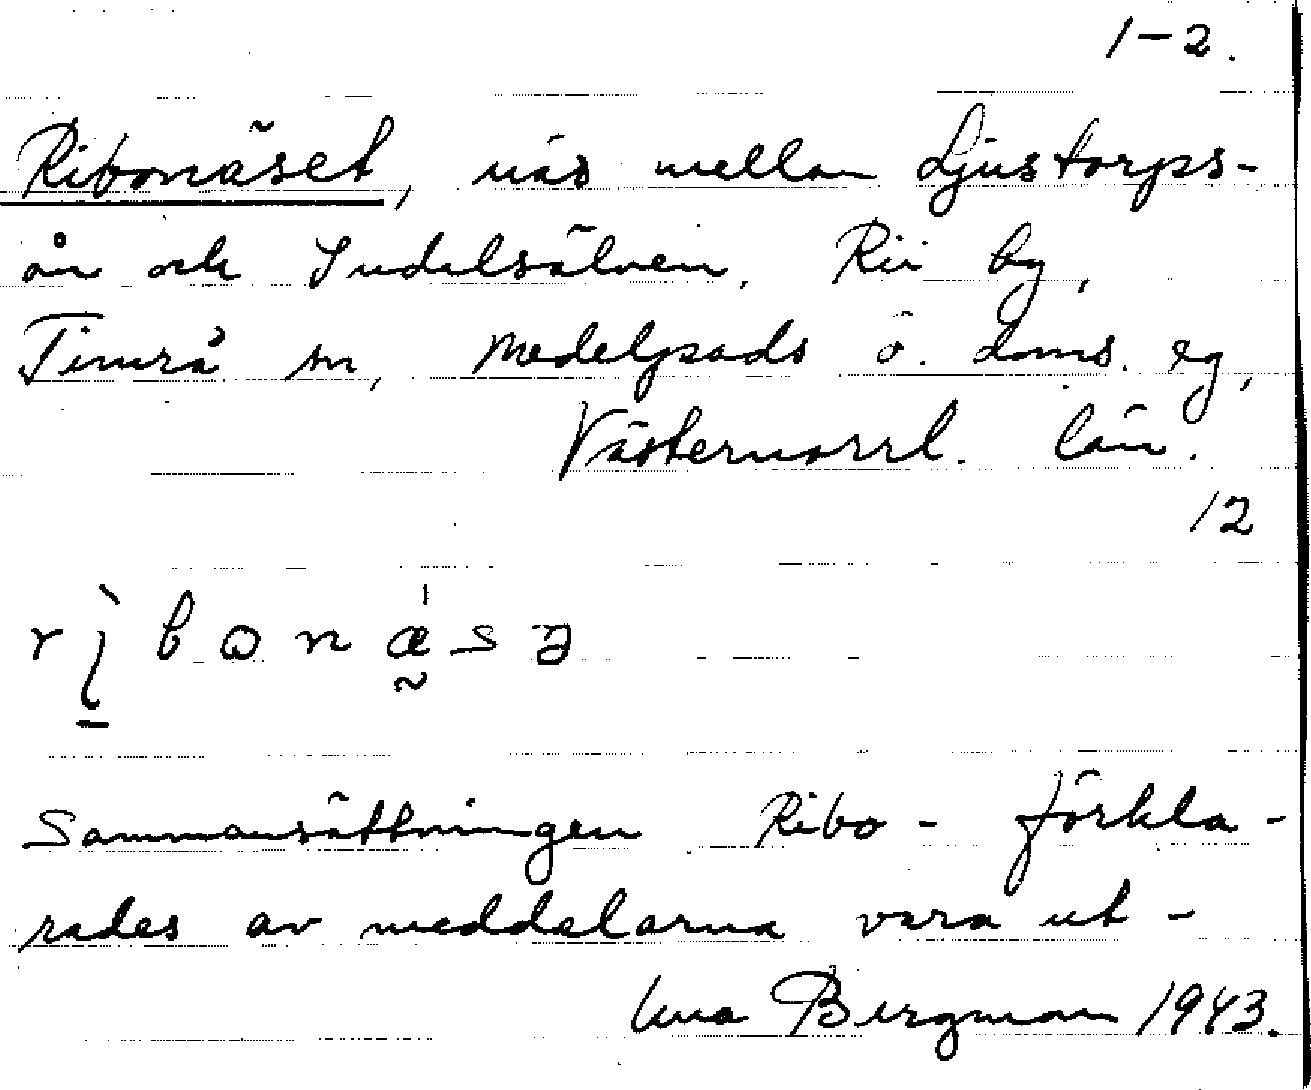 1-2.
Ribonäset, näs mellan Ljustorps-
ån och Indalsälven, Rii by,
Timrå sn, Medelpads ö. doms. sg,
Västernorrl. län.
12
Sammansättningen Ribo- förkla-
rades av meddelarna vara ut-
Bergman 1943.